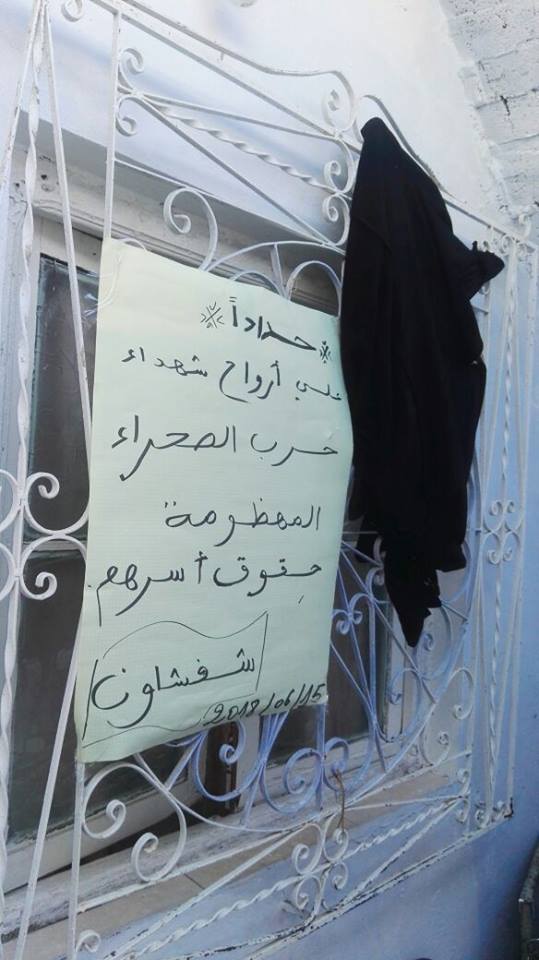 ※ حداداً ※
على أرواح شهداء
حرب الصحراء
المهظومة
حقوق أسرهم.
شفشاون
2018/06/15